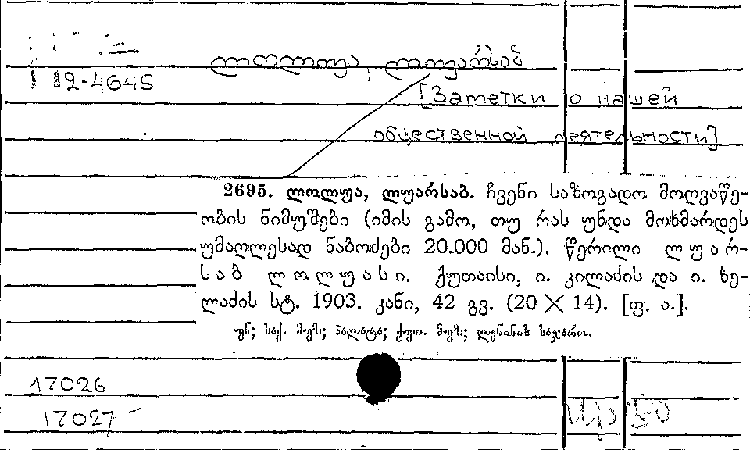 ლოლუა, ლუარსაბ
12-4645
[Заметки о нашей
общественной деятельности]
2695. ლოლუა, ლუარსაბ. ჩვენი საზოგადო მოღვაწე-
ობის ნიმუშები (იმის გამო, თუ რას უნდა მოხმარდეს
უმაღლესად ნაბოძები 20.000 მან.). წერილი ლუარ-
საბ ლოლუასი. ქუთაისი, ი. კილაძის და ი. ხე-
ლაძის სტ. 1903. კანი, 42 გვ. (20 X 14). [ფ. ა.].
17026
17027